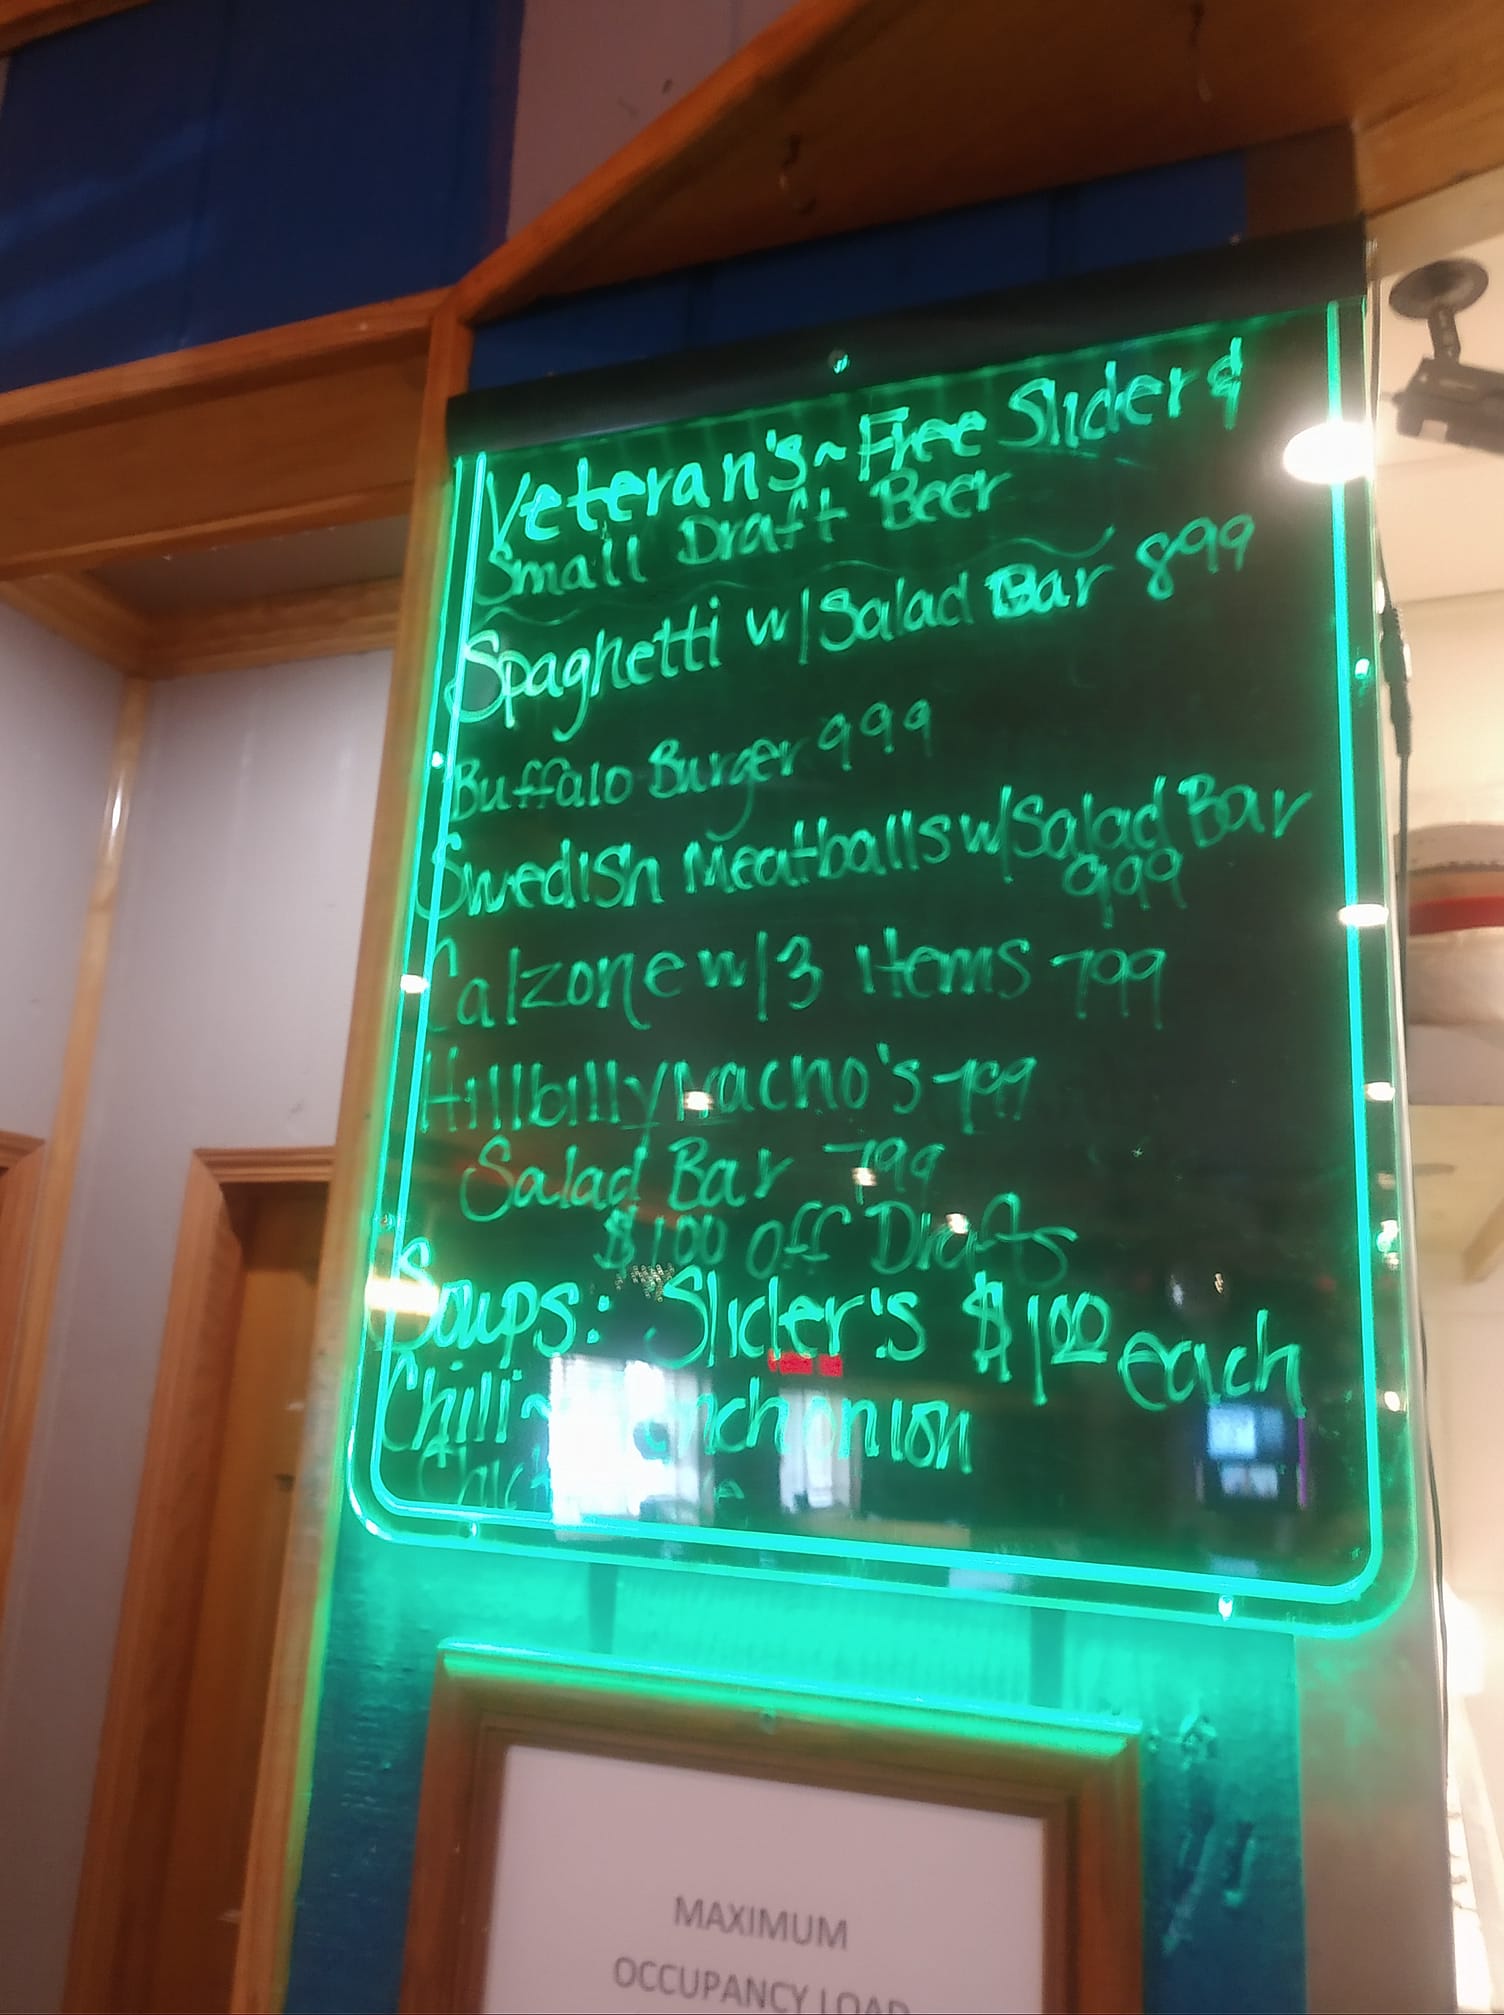 Veteran's~Free Slider &
Small Draft Beer
Spaghetti w/Salad Bar 899
Buffalo Burger 999
Swedish Meatballs w/Salad Bar
999
Calzone w/3 items 799
Hillbilly Nacho's 799
Salad Bar 799
$100 off Drafts
Soups: Slider's $1.00 each
Chili~ onion
MAXIMUM
OCCUPANCY LOAD